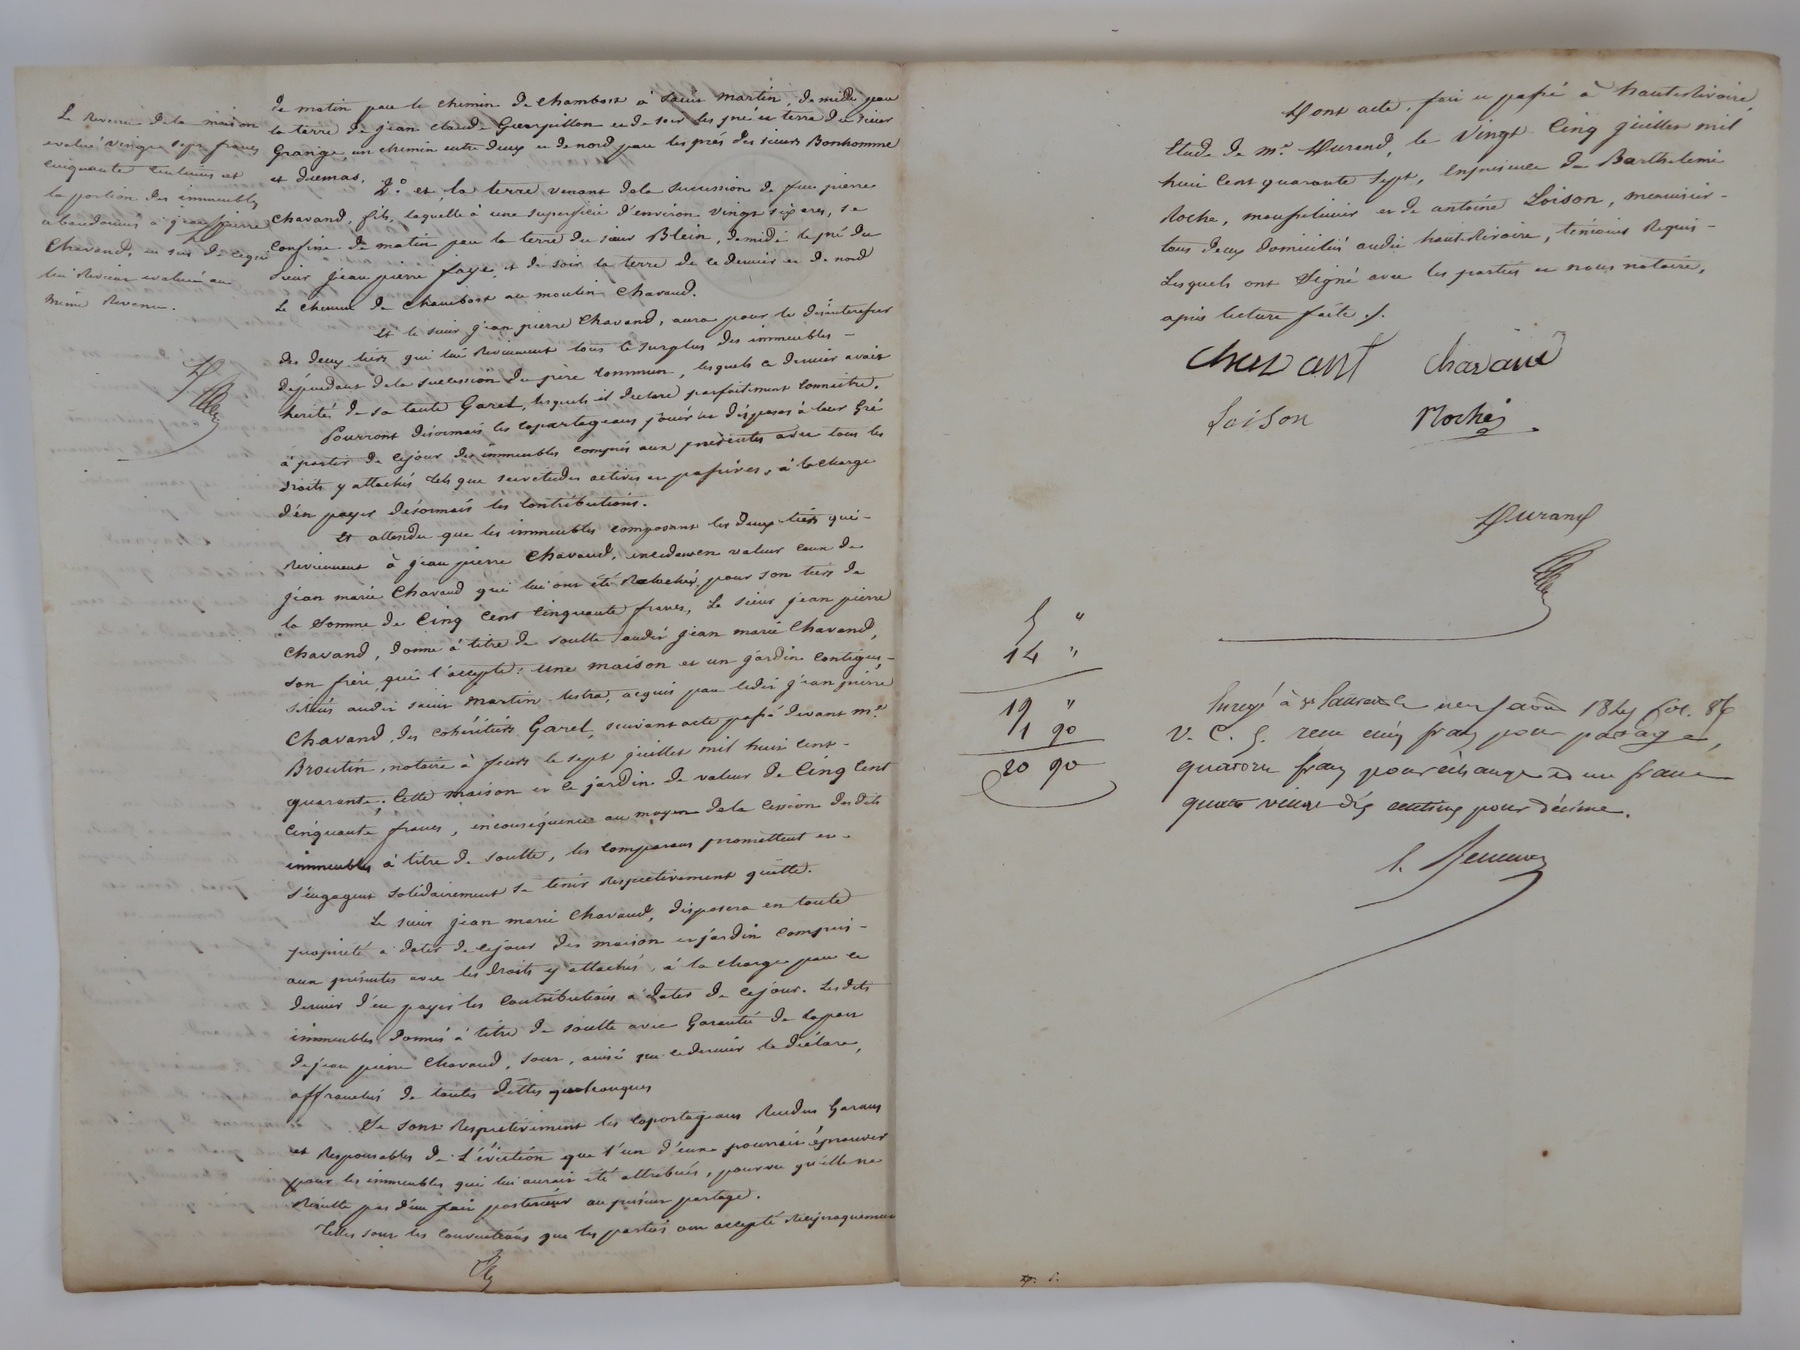 Le Revenu de la maison
evalué vingt sept francs
cinquante centimes et
la portion des immeubles
abandonnés à jean pierre
Chavand, en sus de ce qui
lui Revient evaluée au
même Revenu.
de matin par le chemin de Chambost à Saint Martin, de midi par
la terre de jean Claude Guerpillon et de soir les pré et terre du sieur
Grange, un chemin entre deux et de nord par les prés des sieurs Bonhomme
et duemas.
2.º et la terre venant de la succession de feu pierre
Chavand, fils, laquelle a une superficie d'environ vingt six ares, se
Confine de matin par la terre du sieur Blein, de midi le pré du
Sieur jean pierre faye, et de soir la terre de ce dernier et de nord
le chemin de Chambost au moulin Chavand.
Et le sieur jean pierre Chavand, aura pour le désinteresser
des deux tiers qui lui Reviennent tous le surplus des immeubles
dépendant de la succession du père commun, lesquels ce dernier avait
hérité de sa tante Garel, lesquels il declare parfaitement connaitre.
Pourront désormais les copartageans jouir et disposer à leur Gré
à partir de ce jour des immeubles compris aux présentes avec tous les
droits y attachés tels que servitudes actives et passives, à la charge
d'en payer désormais les contributions.
Et attendu que les immeubles composant les deux tiers qui
Reviennent à jean pierre Chavand, excedent en valeur ceux de
jean marie Chavand qui lui ont été Relachés pour son tiers de
la Somme de Cinq Cent Cinquante francs, Le sieur jean pierre
Chavand, donne à titre de soulte audit jean marie Chavand,
son frère qui l'accepte: une maison et un jardin contigus,
situés audit saint Martin lestra, acquis par ledit jean pierre
Chavand, des cohéritiers Garel, suivant acte passé devant Mᵉ.
Broutin, notaire à feurs le sept juillet mil huit cent
quarante; Cette maison et ce jardin de valeur de Cinq Cent
Cinquante francs, en conséquence au moyen de la cession desdits
immeubles à titre de soulte, les comparans promettent et
s'engagent solidairement se tenir Respectivement quitte.
Le sieur jean marie Chavand, disposera en toute
propriété à dater de ce jour des maison et jardin compris
aux présentes avec les droits y attachés, à la charge par ce
dernier d'en payer les contributions à dater de ce jour. Lesdits
immeubles donnés à titre de soulte avec Garantie de la part
de jean pierre Chavand, sont, ainsi que ce dernier le déclare,
affranchis de toutes dettes quelconques
Se sont Respectivement les copartageans Rendus Garans
et Responsables de l'éviction que l'un d'eux pourrait éprouver
pour les immeubles qui lui aurait été attribués, pourvu qu'elle ne
Résulte pas d'un fait postérieur au présent partage.
Telles sont les conventions que les parties ont accepté Réciproquement
Dont acte, fait et passé à hauteRivoire,
Etude de Mᵉ Durand, le Vingt Cinq juillet mil
huit Cent quarante Sept, En présence de Barthelemi
Roche, et de antoine Loison, menuisier
tous deux domiciliés audit hauteRivoire, témoins Requis
Lesquels ont Signé avec les parties et nous notaire,
après lecture faite ./.
Chavant Chavand
Loison Roche
Durand
5 "
14 "
19 "
1 90
20 90
Enregé à St Laurent le neuf août 1847 fol. 86
V. C. 5. reçu cinq francs pour partage,
quatorze francs pour échange et un franc
quatre vingt dix centimes pour décime.